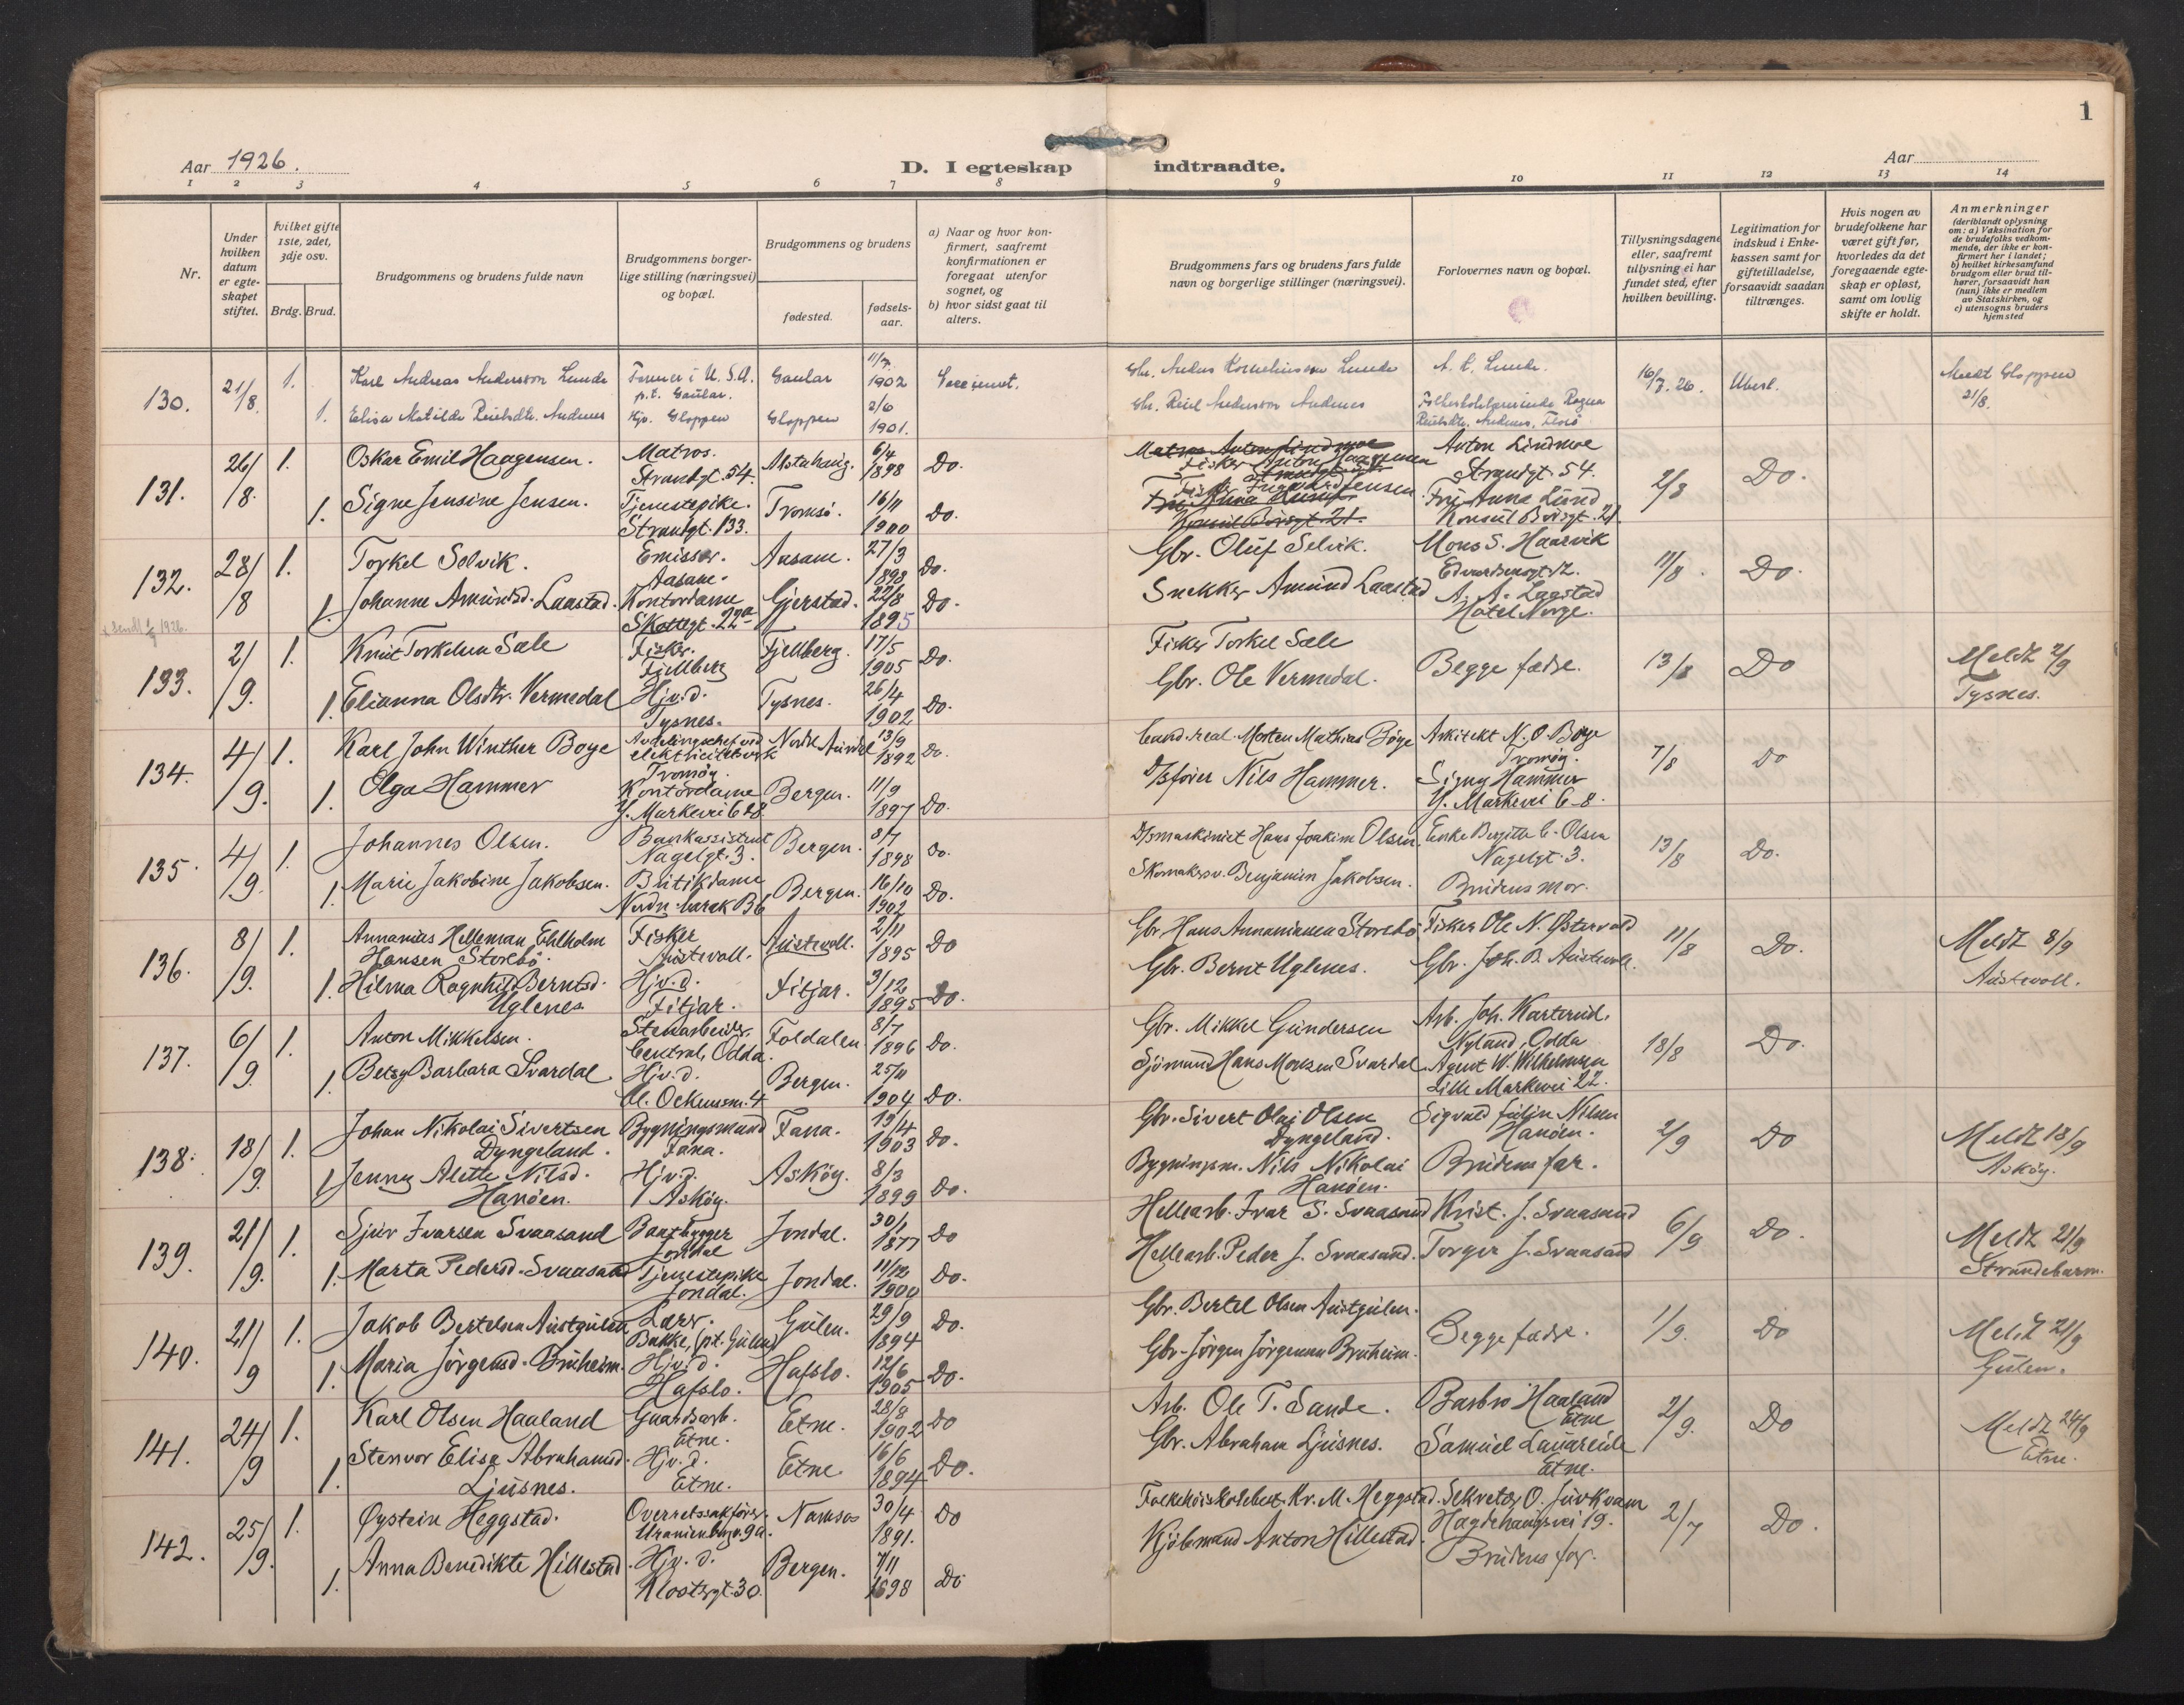 1
Aar 1926.
D. I egteskap indtraadte.
Aar
1 2 3 4 5 6 7 8 9 10 11 12 13 14
Nr.
Under hvilken datum er egteskapet stiftet.
Hvilket gifte 1ste, 2det, 3dje osv.
Brdg. Brud.
Brudgommens og brudens fulde navn
Brudgommens borgerlige stilling (næringsvei) og bopæl.
Brudgommens og brudens
fødested.
fødselsaar.
a) Naar og hvor konfirmert, saafremt konfirmationen er foregaat utenfor sognet, og
b) hvor sidst gaat til alters.
Brudgommens fars og brudens fars fulde navn og borgerlige stillinger (næringsvei).
Forlovernes navn og bopæl.
Tillysningsdagene eller, saafremt tillysning ei har fundet sted, efter hvilken bevilling.
Legitimation for indskud i Enkekassen samt for giftetilladelse, forsaavidt saadan tiltrænges.
Hvis nogen av brudefolkene har været gift før, hvorledes da det foregaaende egteskap er opløst, samt om lovlig skifte er holdt.
Anmerkninger
(deriblandt oplysning om: a) Vaksination for de brudefolks vedkommende, der ikke er konfirmert her i landet;
b) hvilket kirkesamfund brudgom eller brud tilhører, forsaavidt han (hun) ikke er medlem av Statskirken, og
c) utensogns bruders hjemsted
130. 21/8. 1. Karl Andreas Anderson Lunde Farmer i U.S.A. p.t. Gaular. Gaular 11/7 1902 Gbr. Anders Korneliussen Lunde A. K. Lunde. 16/7. 26. Ubest. Meldt Gloppen 21/8.
1. Elisa Matilde Reielsdtr. Andenes Hjv. Gloppen Gloppen 2/6 1901. Gbr. Reiel Anderson Andenes
131. 26/8. 1. Oskar Emil Haagensen. Matros. Strandgt. 54. Alstahaug. 6/4 1898 Do. Fisker Anton Haagensen Anton Lindmoe Strandgt. 54. 2/8 Do.
1. Signe Jensine Jensen. Tjenestepike. Strandgt. 133. Tromsø. 16/11 1900 Do. Frk. Anna Lund Konsul Børsgt. 21.
132. 28/8 1. Torkel Selvik. Emissær. Aasane. Aasane. 27/3 1898 Do. Gbr. Oluf Selvik. Mons S. Haarvik Edvardsensgt. 12. 11/8. Do.
1. Johanne Amundsd. Laastad. Kontordame Skottegt. 22a Gjerstad. 22/8 1895 Do. Snekker Amund Laastad A. A. Laastad Hotel Norge.
133. 2/9. 1. Knut Torkelsen Sæle Fisker. Fjellberg Fjellberg. 17/5 1905 Do. Fisker Torkel Sæle Begge fædre. 13/8 Do Meldt 2/9 Tysnes.
1. Elianna Olsdtr. Vermedal Hjv.d. Tysnes. Tysnes. 26/4 1902 Do. Gbr. Ole Vermedal.
134. 4/9. 1. Karl John Winther Boye Avdelingschef ved elektricitetsverk Tromøy. 13/9 1892 Do. Cand. real. Morten Mathias Böye Arkitekt N. O. Böye Tromøy. 7/8 Do
1. Olga Hammer Kontordame Y. Markevei 6-8 Bergen. 11/9 1897 Do. D/sfører Nils Hammer. Signy Hammer Y. Markevei 6-8.
135. 4/9. 1. Johannes Olsen. Bankassistent Nagelgt. 3. Bergen. 8/7 1898 Do. D/smaskinist Hans Joakim Olsen. Enke Bergitte C. Olsen Nagelgt. 3. 13/8 Do.
1. Marie Jakobine Jakobsen. Butikdame Bergen. 16/10 1902 Do. Skomakersv. Benjamin Jakobsen. Brudens mor.
136. 8/9. 1. Annanias Helleman Ehlholm Hansen Storebö. Fisker Austevoll. Austevoll. 2/11 1895 Do Gbr. Hans Annaniassen Storebö Fisker Ole N. Østervold 11/8 Do. Meldt 8/9 Austevoll.
1. Hilma Ragnhild Berntsd. Uglenes Hjv.d. Fitjar. Fitjar. 3/12 1895 Do. Gbr. Bernt Uglenes. Gbr. Joh. B. Austevoll.
137. 6/9. 1. Anton Mikkelsen. Stenarbeider. Central, Odda. Foldalen 8/7 1896 Do. Gbr. Mikkel Gundersen Arb. Joh. Karterud. Nyland, Odda 18/8 Do.
1. Betzy Barbara Svardal Hjv.d. Bergen. 25/11 1904 Do. Sjömand Hans Monsen Svardal. Agent W. Wilhelmsen Lille Markevei 22.
138. 18/9. 1. Johan Nikolai Sivertsen Dyngeland. Bygningsmand Fana. Fana. 13/4 1903 Do. Gbr. Sivert Olai Olsen Dyngeland. Sigvald Julin Nilsen Hanöen. 2/9 Do Meldt 18/9 Asköy.
1. Jenny Alette Nilsd. Hanöen. Hjv.d. Asköy. Asköy. 8/3 1899 Do. Bygningsm. Nils Nikolai Hanöen. Brudens far.
139. 21/9. 1. Sjur Ivarsen Svaasand Baatbygger Jondal Jondal. 30/1 1877 Do Hellearb. Ivar S. Svaasand Krist. J. Svaasand 6/9 Do. Meldt 21/9 Strandebarm.
1. Marta Pedersd. Svaasand Tjenestepike Jondal. Jondal. 11/12 1900 Do. Hellearb. Peder J. Svaasand. Torger J. Svaasand
140. 21/9 1. Jakob Bertelsen Austgulen Lærer. Bakke, (pt. Gulen) Gulen. 29/9 1894 Do. Gbr. Bertel Olsen Austgulen. Begge fædre. 1/9. Do Meldt 21/9 Gulen.
1. Maria Jörgensd. Bruheim. Hjv.d. Hafslo. Hafslo. 12/6 1905 Do. Gbr. Jörgen Jörgensen Bruheim.
141. 24/9 1. Karl Olsen Haaland Gaardsarb. Etne. Etne. 28/8 1902 Do Arb. Ole T. Sande. Barbro Haaland Etne 2/9. Do Meldt 24/9 Etne.
1. Stenvor Elise Abrahamsd. Ljusnes. Hjv.d. Etne. Etne. 16/6 1894 Do. Gbr. Abraham Ljusnes. Samuel Lauareide Etne.
142. 25/9. 1. Øystein Heggstad. Overretssakfører. Uranienborgv. 9a. Namsos 30/4 1891. Do Folkehöiskolebest. Kr. M. Heggstad. Sekretær O. Juvkvam Hagdehaugsvei 19. 2/7 Do.
1. Anna Benedikte Hillestad. Hjv.d. Klostergt. 30. Bergen. 7/11 1898 Do Kjöbmand Anton Hillestad. Brudens far.